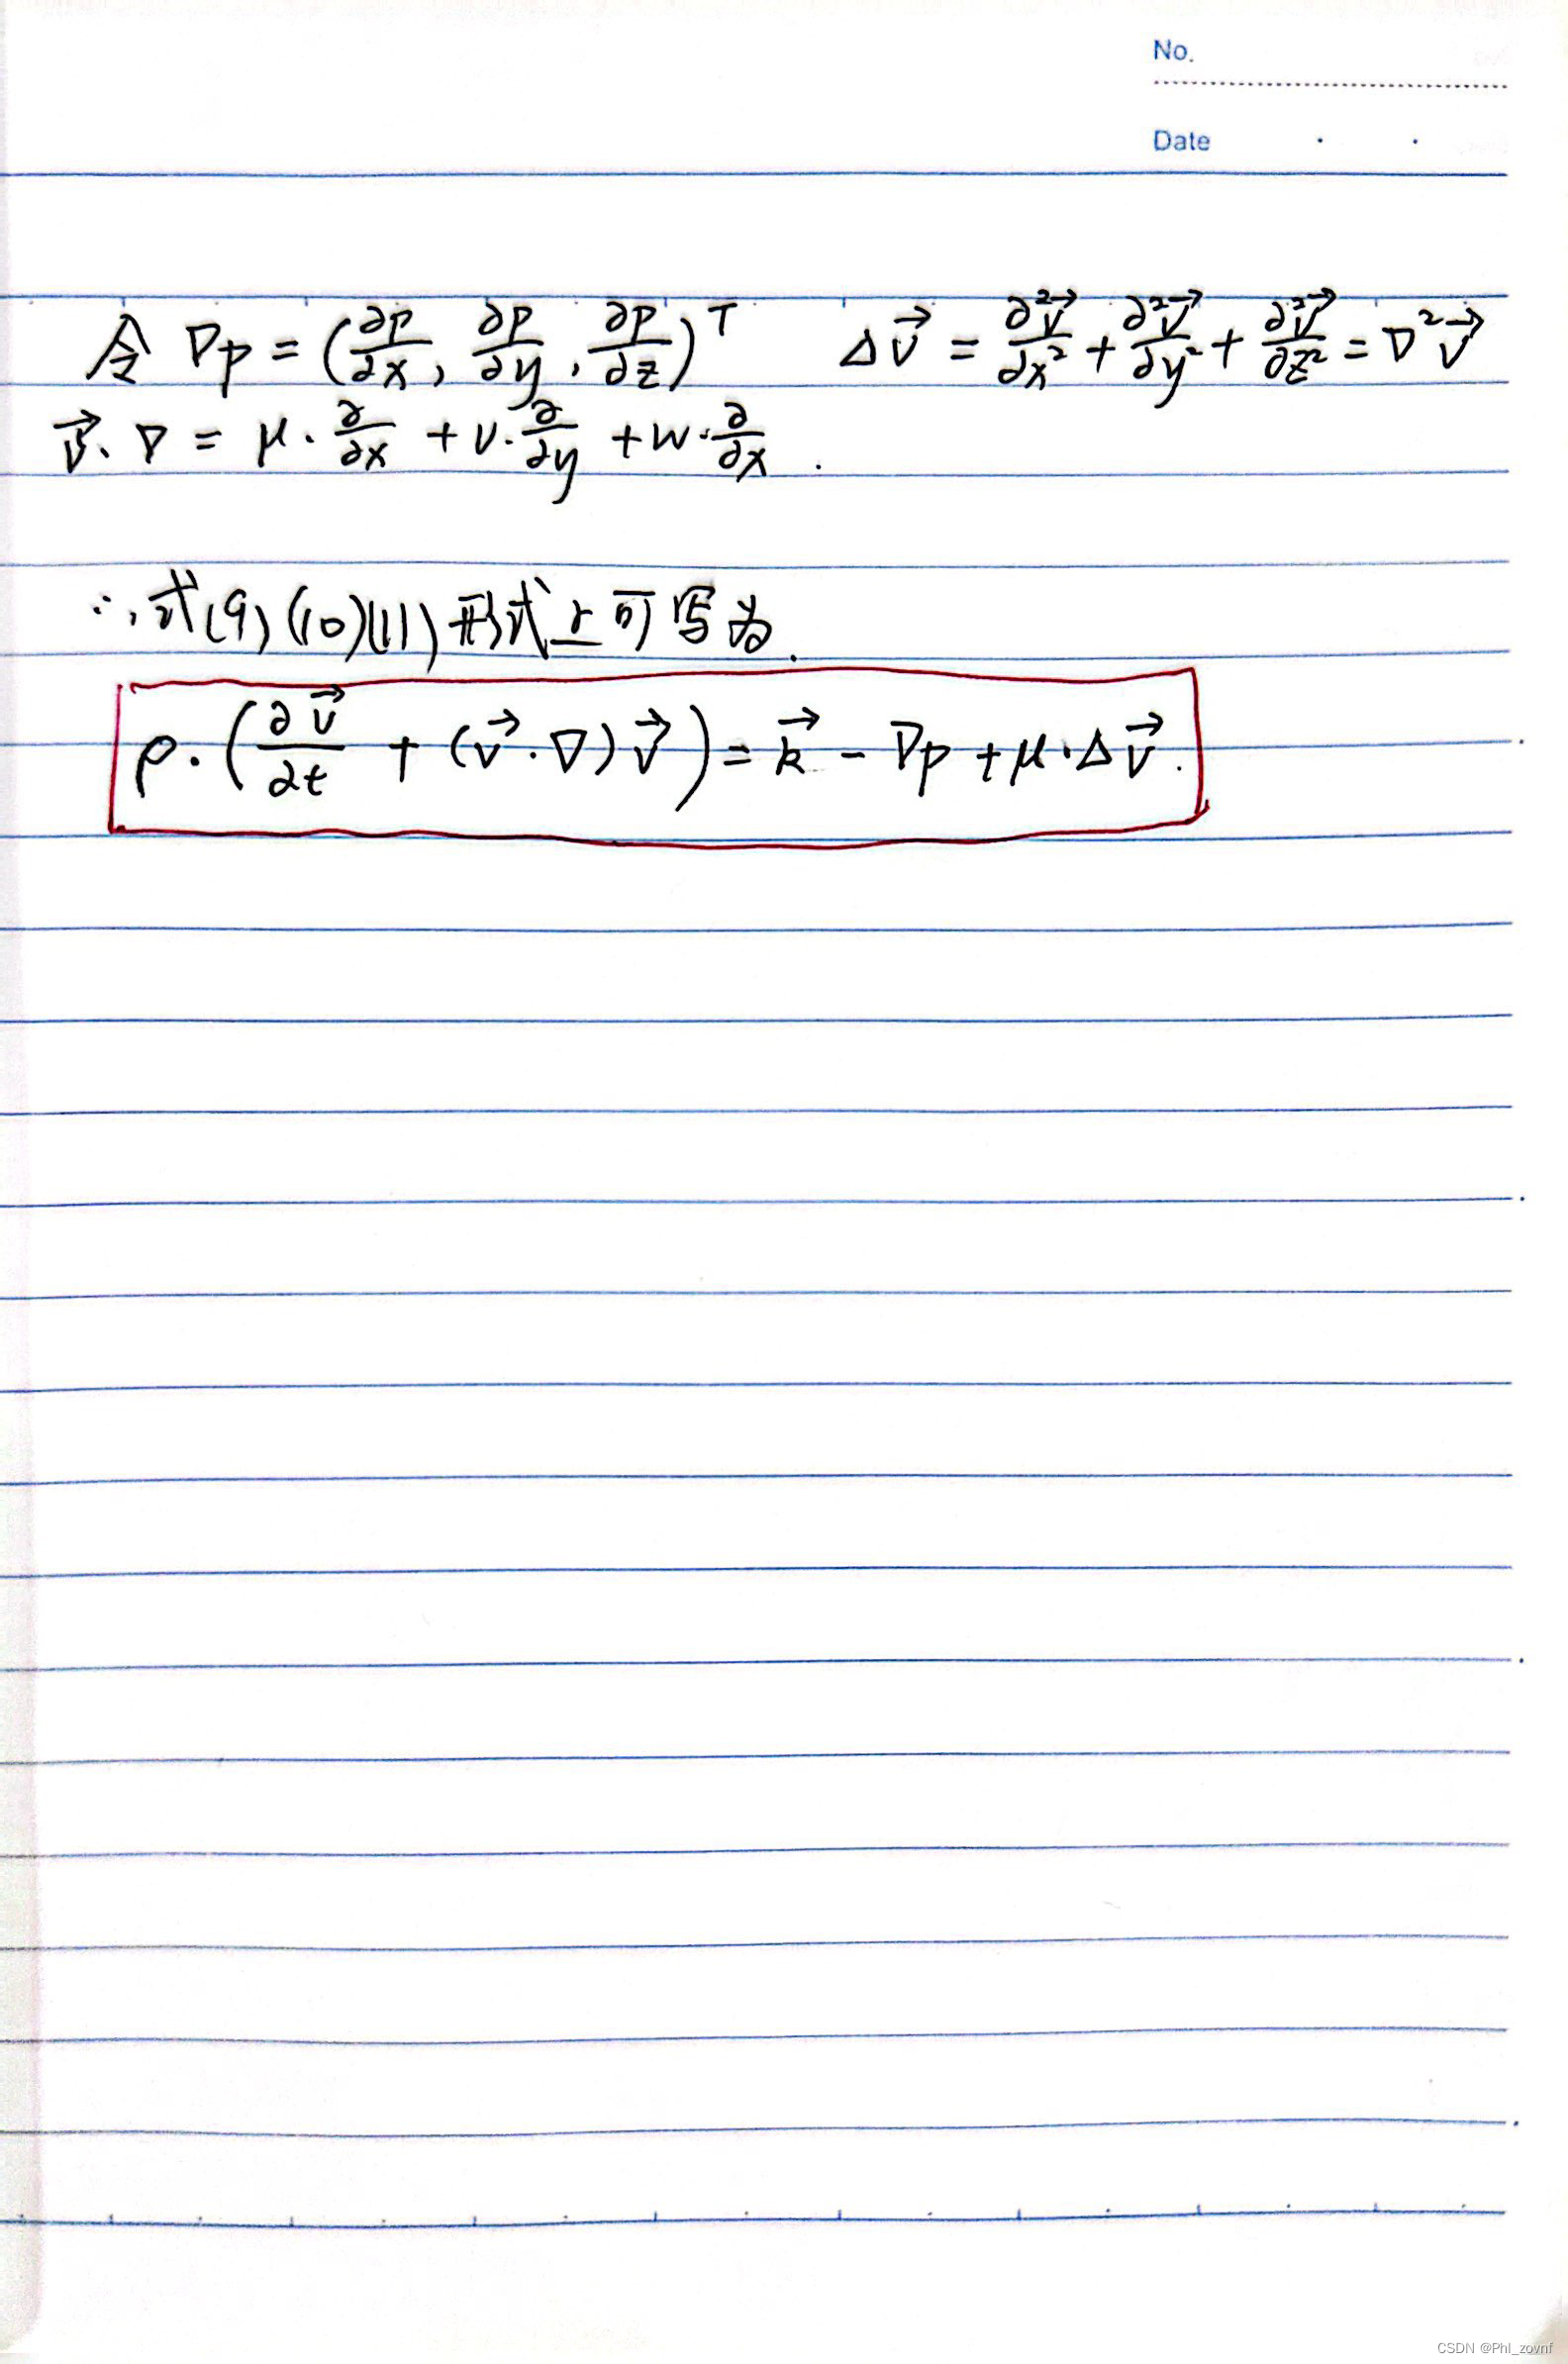 No.
Date · ·
令 ∇p = (∂p/∂x, ∂p/∂y, ∂p/∂z)ᵀ  Δv⃗ = ∂²v⃗/∂x² + ∂²v⃗/∂y² + ∂²v⃗/∂z² = ∇²v⃗
v⃗·∇ = μ·∂/∂x + v·∂/∂y + w·∂/∂x .
∴ 式(9)(10)(11)形式上可写为.
ρ·(∂v⃗/∂t + (v⃗·∇)v⃗) = k⃗ - ∇p + μ·Δv⃗.
CSDN @Phl_zovnf